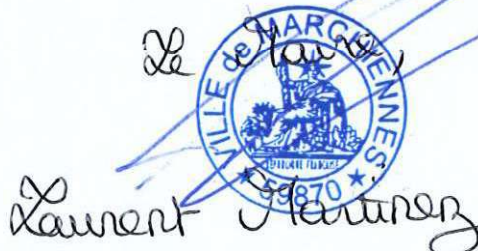 Le Maire,
VILLE de MARCHIENNES
★ 59870 ★
Laurent Martinez